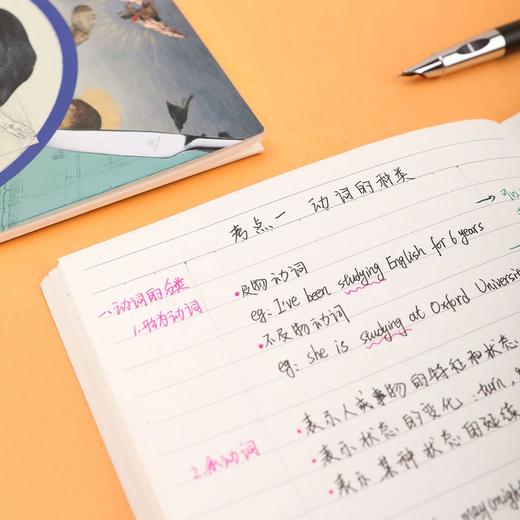 考点一 动词的种类
一.动词的分类
1.行为动词
•及物动词
eg: I've been studying English for 6 years
•不及物动词
eg: she is studying at Oxford Universit
2.系动词
•表示人或事物的特征和状态
•表示状态的变化: turn,
•表示某种状态的延续
may(might